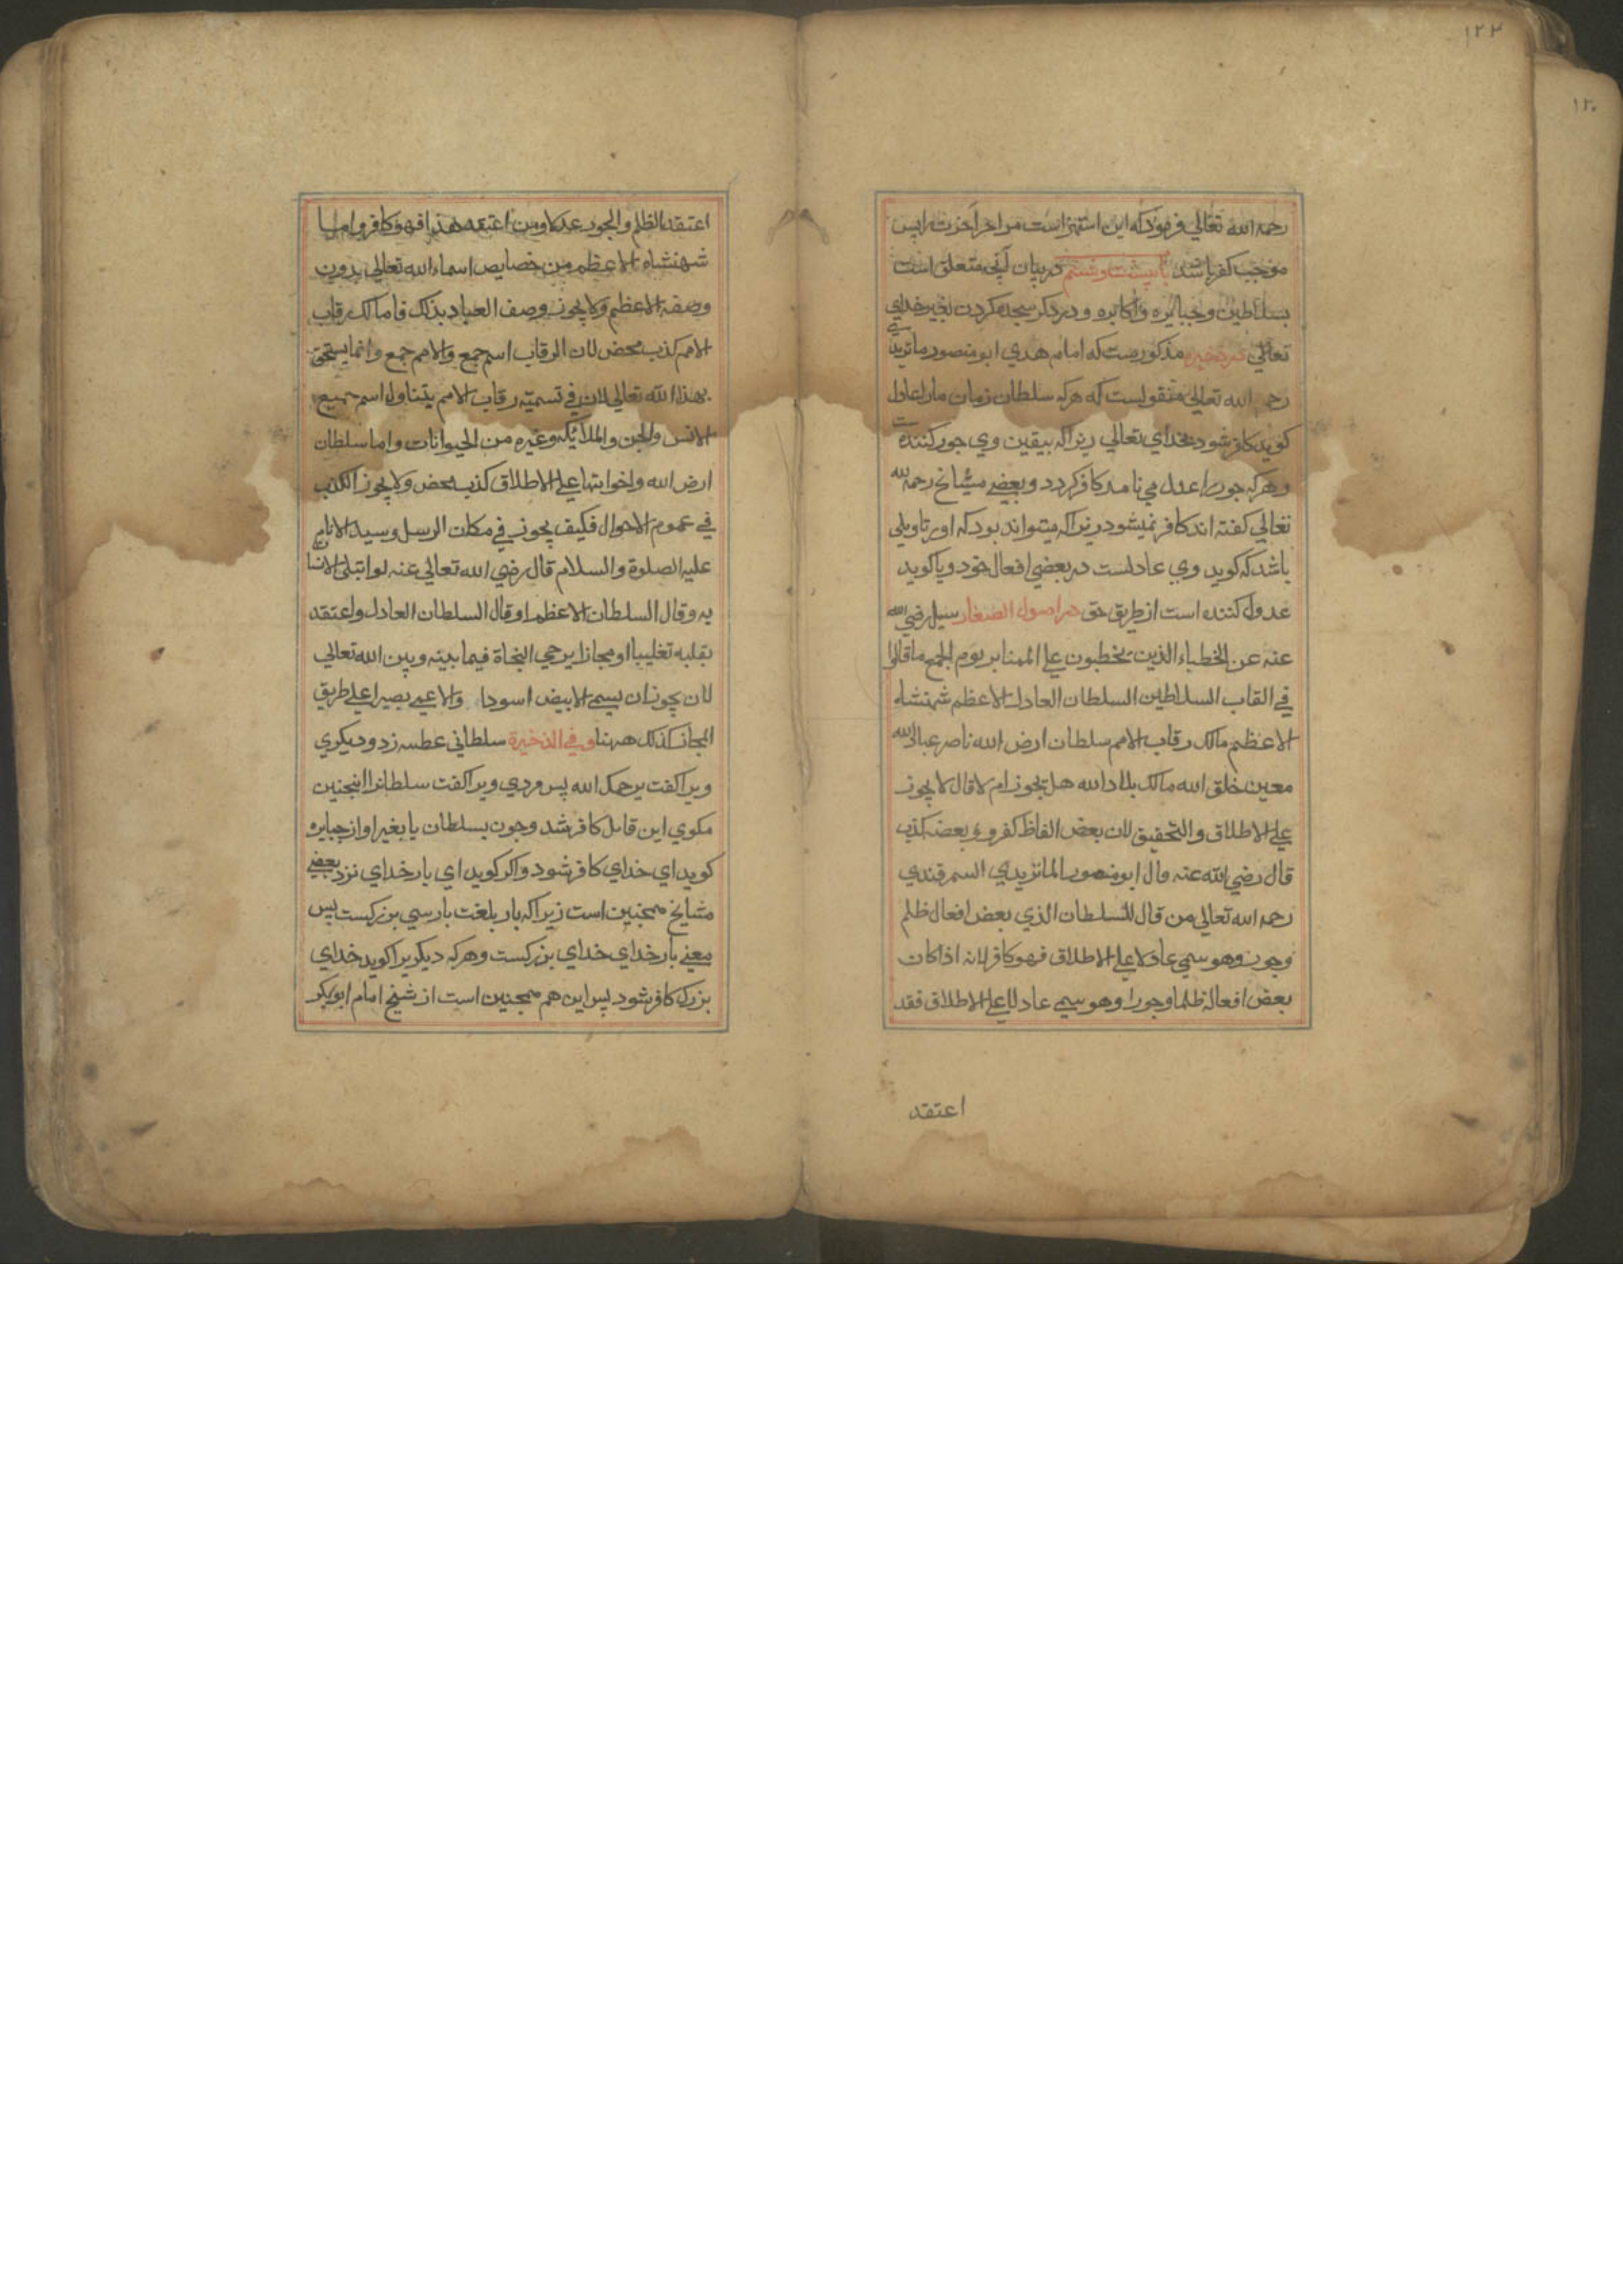 ١٢٣
١٢٠
رحمه الله تعالي فرمود كه اين استهزاست مر امر آخرت را پس
موجب كفر باشد باب بيست و ششم در بيان آنچه متعلق است
بسلاطين و جبابره و اكابره و در ذكر سجده كردن بغير خداي
تعالي در ذخيره مذكورست كه امام هدي ابو منصور ماتريدي
رحمه الله تعالي منقولست كه هركه سلطان زمان ما را عادل
كويد كافر شود بخداي تعالي زيراكه بيقين وي جور كننده ست
وهركه جور را عدل مي نامد كافر كردد و بعضي مشايخ رحمه الله
تعالي كفته اند كافر نميشود زيراكه ميتواند بود كه او را تاويلي
باشد كه كويد وي عادلست در بعضي افعال خود و يا كويد
عدول كننده است از طريق حق در اصول الصفار سيل رضي الله
عنه عن الخطباء الذين يخطبون علي المنابر يوم الجمع ما قالوا
في القاب السلاطين السلطان العادل الاعظم شهنشاه
الاعظم مالك رقاب الامم سلطان ارض الله ناصر عباد الله
معين خلق الله مالك بلاد الله هل يجوز ام لا قال لا يجوز
علي الاطلاق والتحقيق لان بعض الفاظ كفر و بعضه كذب
قال رضي الله عنه قال ابو منصور الماتريدي السمرقندي
رحمه الله تعالي من قال للسلطان الذي بعض افعال ظلم
وجور وهو سمي عادلا علي الاطلاق فهو كافر لانه اذا كان
بعض افعاله ظلما وجورا وهو يسمي عادلا علي الاطلاق فقد
اعتقد
اعتقد الظلم والجور عدلا ومن اعتقد هذا فهو كافر واما
شهنشاه الاعظم من خصايص اسماء الله تعالي بدون
وصفه الاعظم ولا يجوز وصف العباد بذلك فاما مالك رقاب
الامم كذب محض لان الرقاب اسم جمع والامم جمع وانما يستحق
بهذا الله تعالي لان في تسميته رقاب الامم يتناول اسم جميع
الانس والجن والملائكة وغيره من الحيوانات واما سلطان
ارض الله واخواتها علي الاطلاق كذب محض ولا يجوز الكذب
في عموم الاحوال فكيف يجوز في مكان الرسل وسيد الانام
عليه الصلوة والسلام قال رضي الله تعالي عنه لو ابتلي الانسان
به وقال السلطان الاعظم او قال السلطان العادل واعتقد
بقلبه تغليبا او مجازا يرجي النجاة فيما بينه وبين الله تعالي
لان يجوز ان يسمي الابيض اسودا والاعمي بصيرا علي طريق
المجاز كذلك ههنا وفي الذخيرة سلطاني عطسه زد و ديكري
ويرا كفت يرحمك الله پس مردي ويرا كفت سلطانرا اينچنين
مكوي اين قايل كافر شد و چون بسلطان يا بغير او از جبابره
كويد اي خداي كافر شود واكر كويد اي بار خداي نزد بعضي
مشايخ همچنين است زيراكه بار بلغت پارسي بزركست پس
معني بار خداي خداي بزركست وهركه ديكريرا كويد خداي
بزرك كافر شود پس اين هم همچنين است از شيخ امام ابوبكر